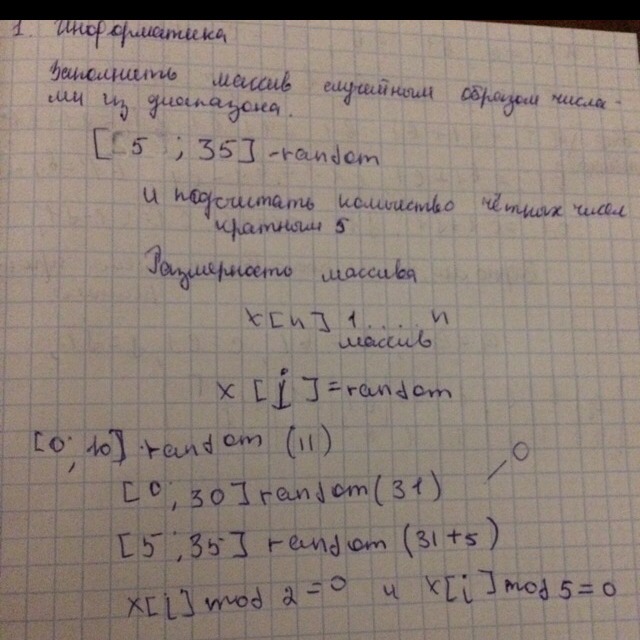 1. Информатика
Заполнить массив случайным образом числа-
ми из диапазона.
[5 ; 35] -random
и подсчитать количство чётных чисел
кратным 5
Размерность массива
x[n] 1.....n
массив
x [i] =random
[0; 10] random (11)
[0; 30] random(31)
0
[5; 35] random (31+5)
x[i] mod 2 =0 и x[i] mod 5=0